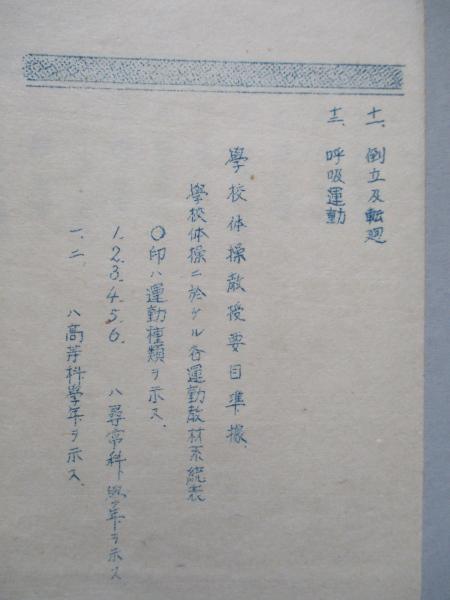 十一、倒立及転廻
十二、呼吸運動
學校体操教授要目準據
學校体操ニ於ケル各運動教材系統表
〇印ハ運動種類ヲ示ス、
1.2.3.4.5.6. ハ尋常科ノ學年ヲ示ス
一、二、ハ高等科學年ヲ示ス、